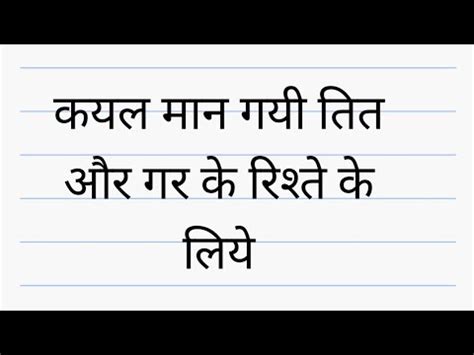 कयल मान गयी तित
और गर के रिश्ते के
लिये